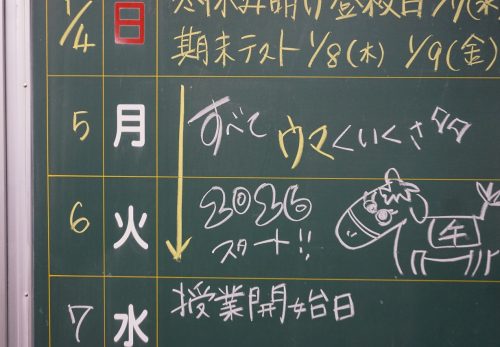 1/4 日 冬休み明け登校日 1/7(水
期末テスト 1/8(木) 1/9(金)
5 月 すべて ウマくいくさ
6 火 2026
スタート!!
午
7 水 授業開始日